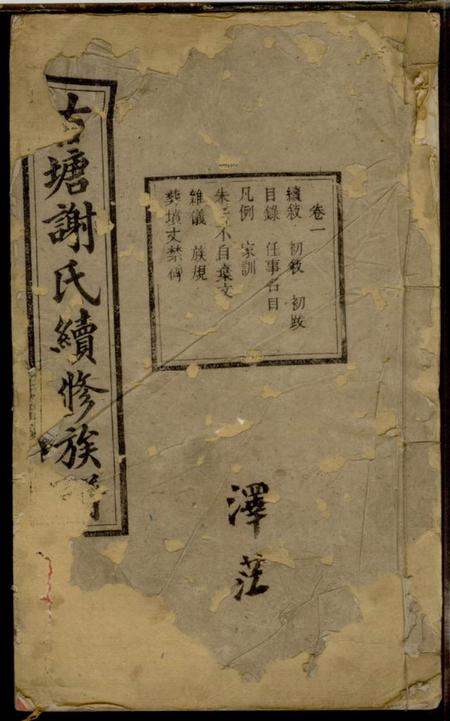 古塘謝氏續修族譜
卷一
續敘 初敘 初跋
目錄 任事名目
凡例 家訓
朱子不自棄文
雜儀 族規
葬墳丈禁碑
澤茫